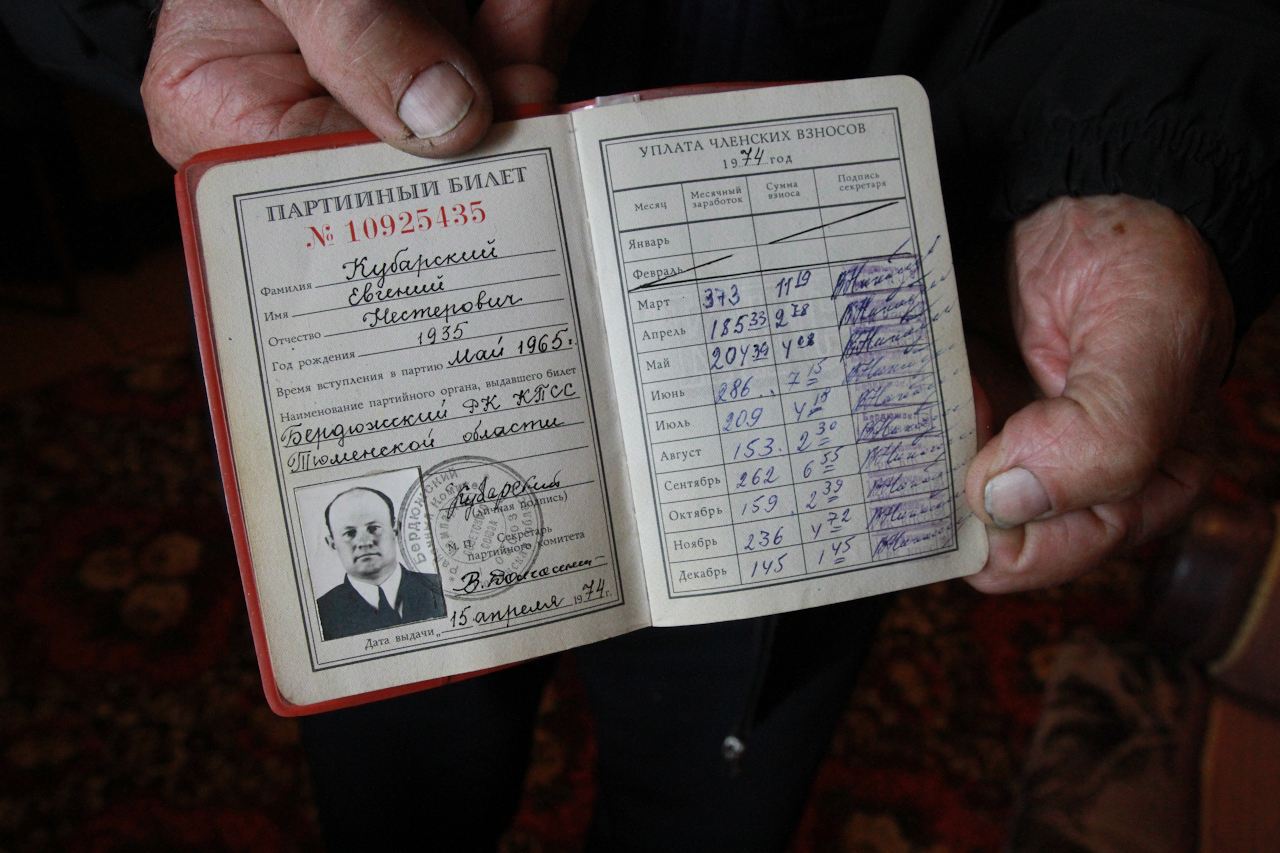 ПАРТИЙНЫЙ БИЛЕТ
№ 10925435
Фамилия Кубарский
Имя Евгений
Отчество Нестерович
Год рождения 1935
Время вступления в партию Май 1965 г.
Наименование партийного органа, выдавшего билет
Бердюжский РК КПСС
Тюменской области
Кубарский
(личная подпись)
М. П. Секретарь
партийного комитета
Дата выдачи „15 апреля 1974 г.
УПЛАТА ЧЛЕНСКИХ ВЗНОСОВ
1974 год
Месяц Месячный заработок Сумма взноса Подпись секретаря
Январь
Февраль
Март 373 11 19
Апрель 185 33 2 78
Май 204 39 4 08
Июнь 286 7 15
Июль 209 4 18
Август 153. 2 30
Сентябрь 262 6 55
Октябрь 159 2 39
Ноябрь 236 4 72
Декабрь 145 1 45